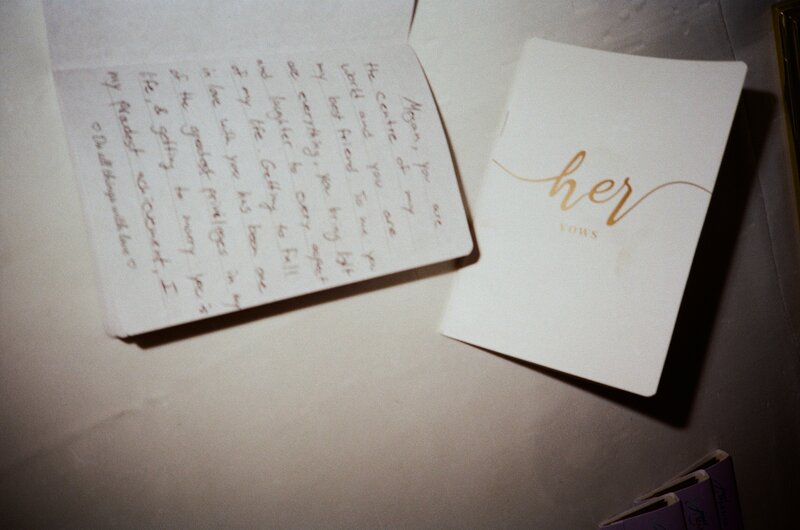 Megan, you are
the centre of my
world and you are
my best friend. To me you
are everything, you bring light
and laughter to every aspect
of my life. Getting to fall
in love with you has been one
of the greatest privileges in my
life, & getting to marry you is
my greatest achievement, I
♡ Do all things with love ♡
her
VOWS